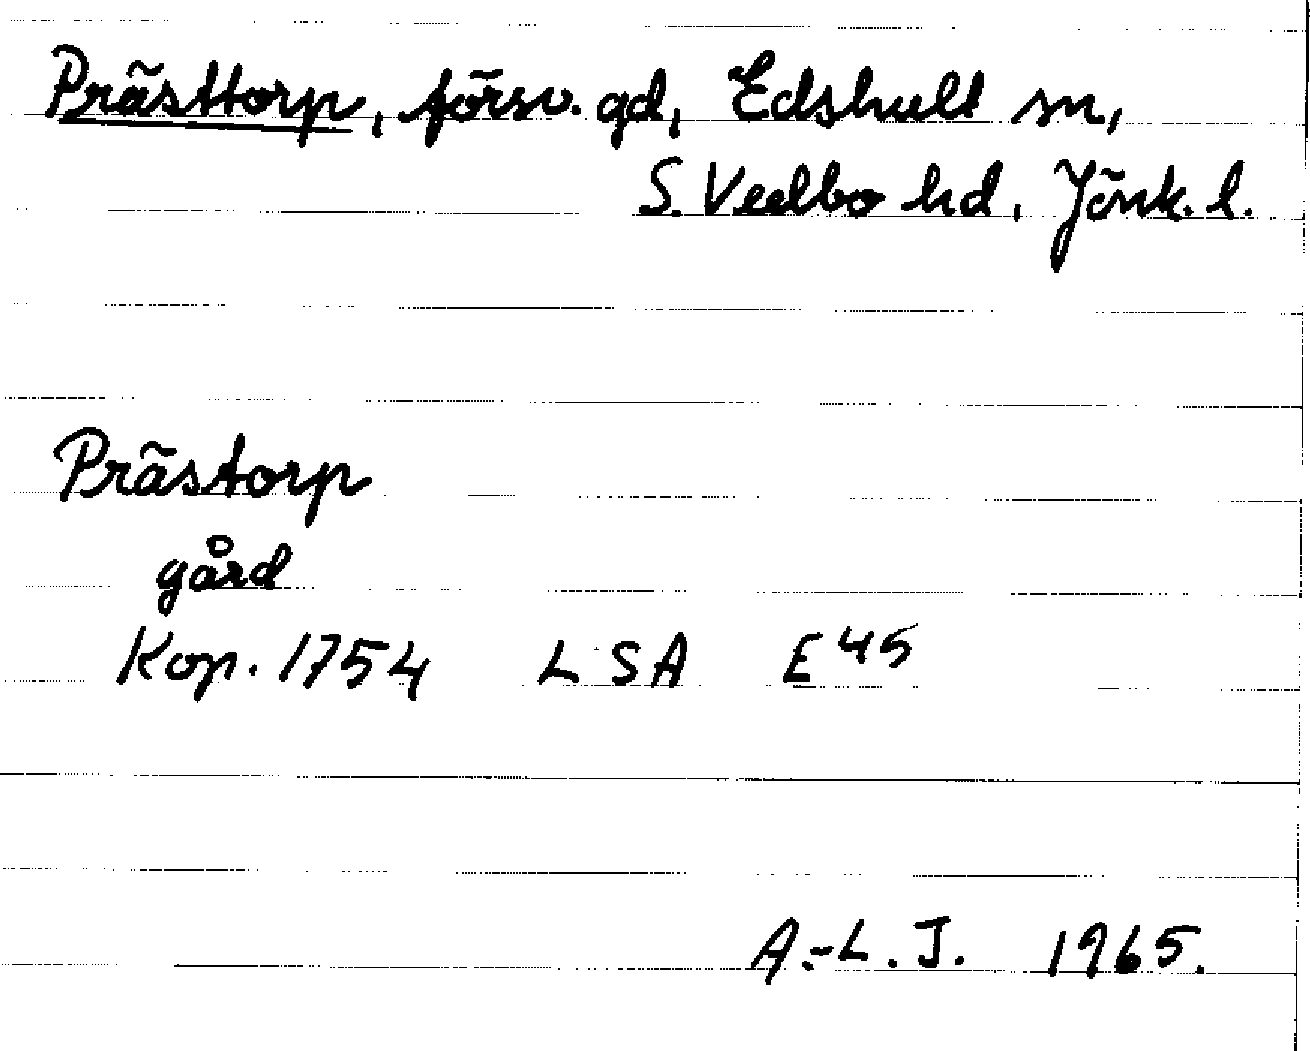 Prästtorp, försv. gd, Edshult sn,
S. Vedbo hd, Jönk. l.
Prästorp
gård
Kop. 1754 LSA E 45
A.-L. J. 1965.